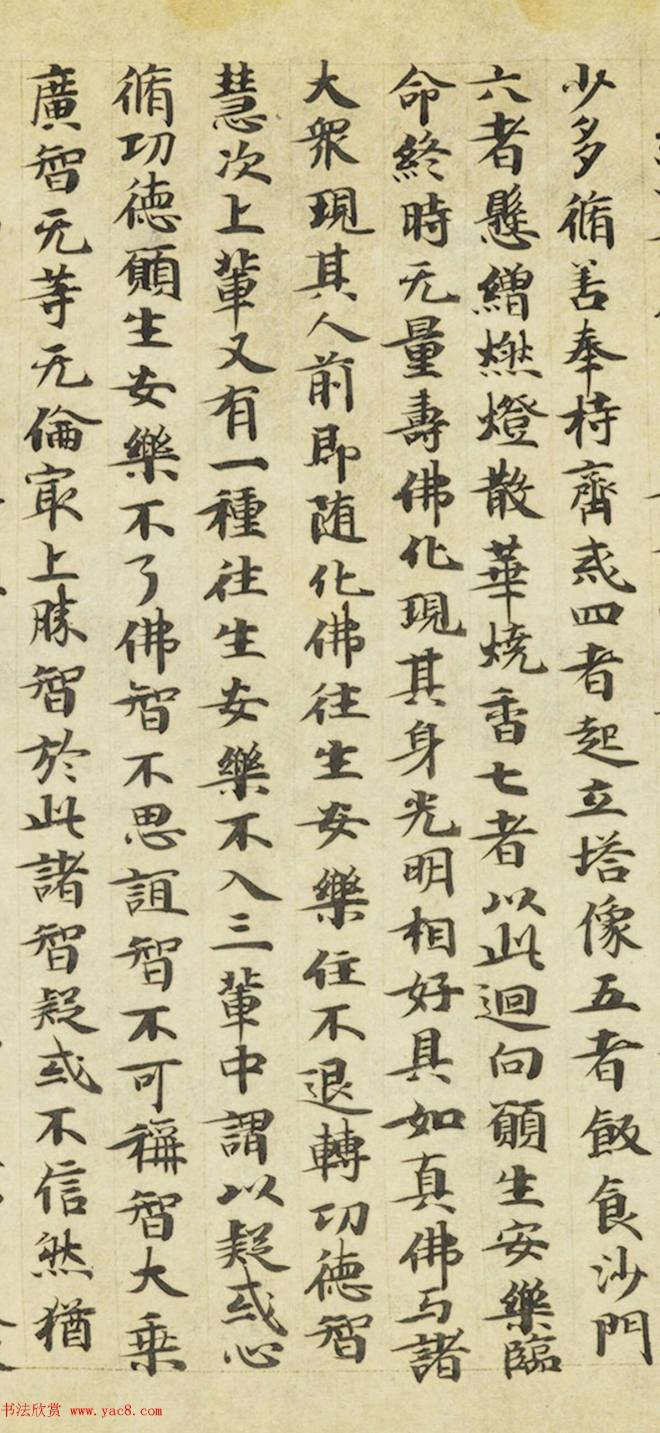 少多脩善奉持齋惑四者起立塔像五者飯食沙門
六者懸繒燃燈散華燒香七者以此迴向願生安樂臨
命終時无量壽佛化現其身光明相好具如真佛与諸
大眾現其人前即随化佛往生安樂住不退轉功德智
慧次上輩又有一種往生安樂不入三輩中謂以疑或心
脩功德願生安樂不了佛智不思誼智不可稱智大乗
廣智无等无倫冣上勝智於此諸智疑或不信然猶
书法欣赏 www.yac8.com